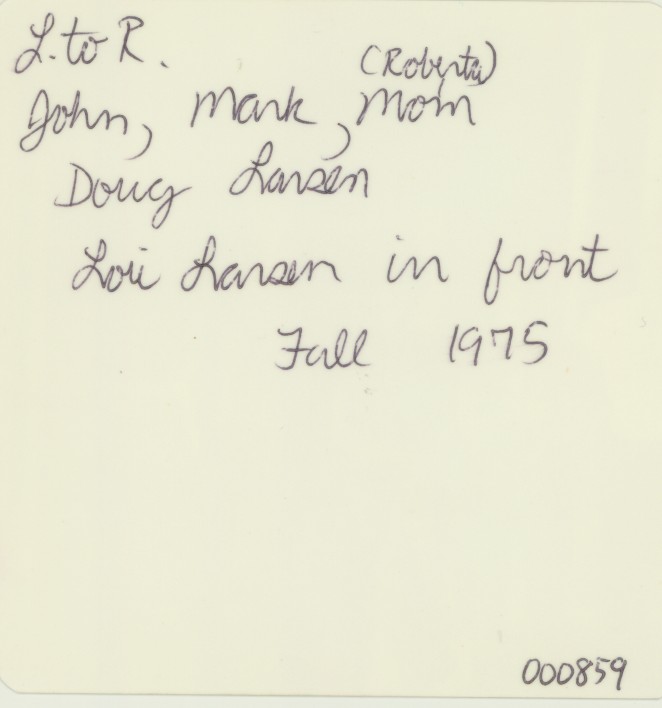 L. to R.
(Roberta)
John, Mark, Mom
Doug Larsen
Lori Larsen in front
Fall 1975
000859